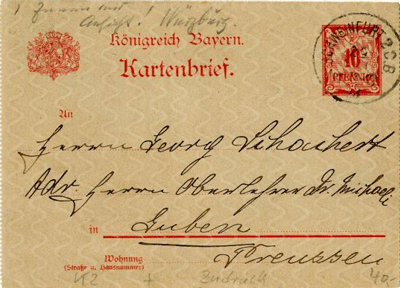 Würzburg.
Königreich Bayern.
Kartenbrief.
10
PFENNIG
An
Herrn Georg Schachert
Adr. Herrn Oberlehrer Dr. Michaeli
in Guben
Preussen
Wohnung
(Straße u. Hausnummer)
K2 + 40,-